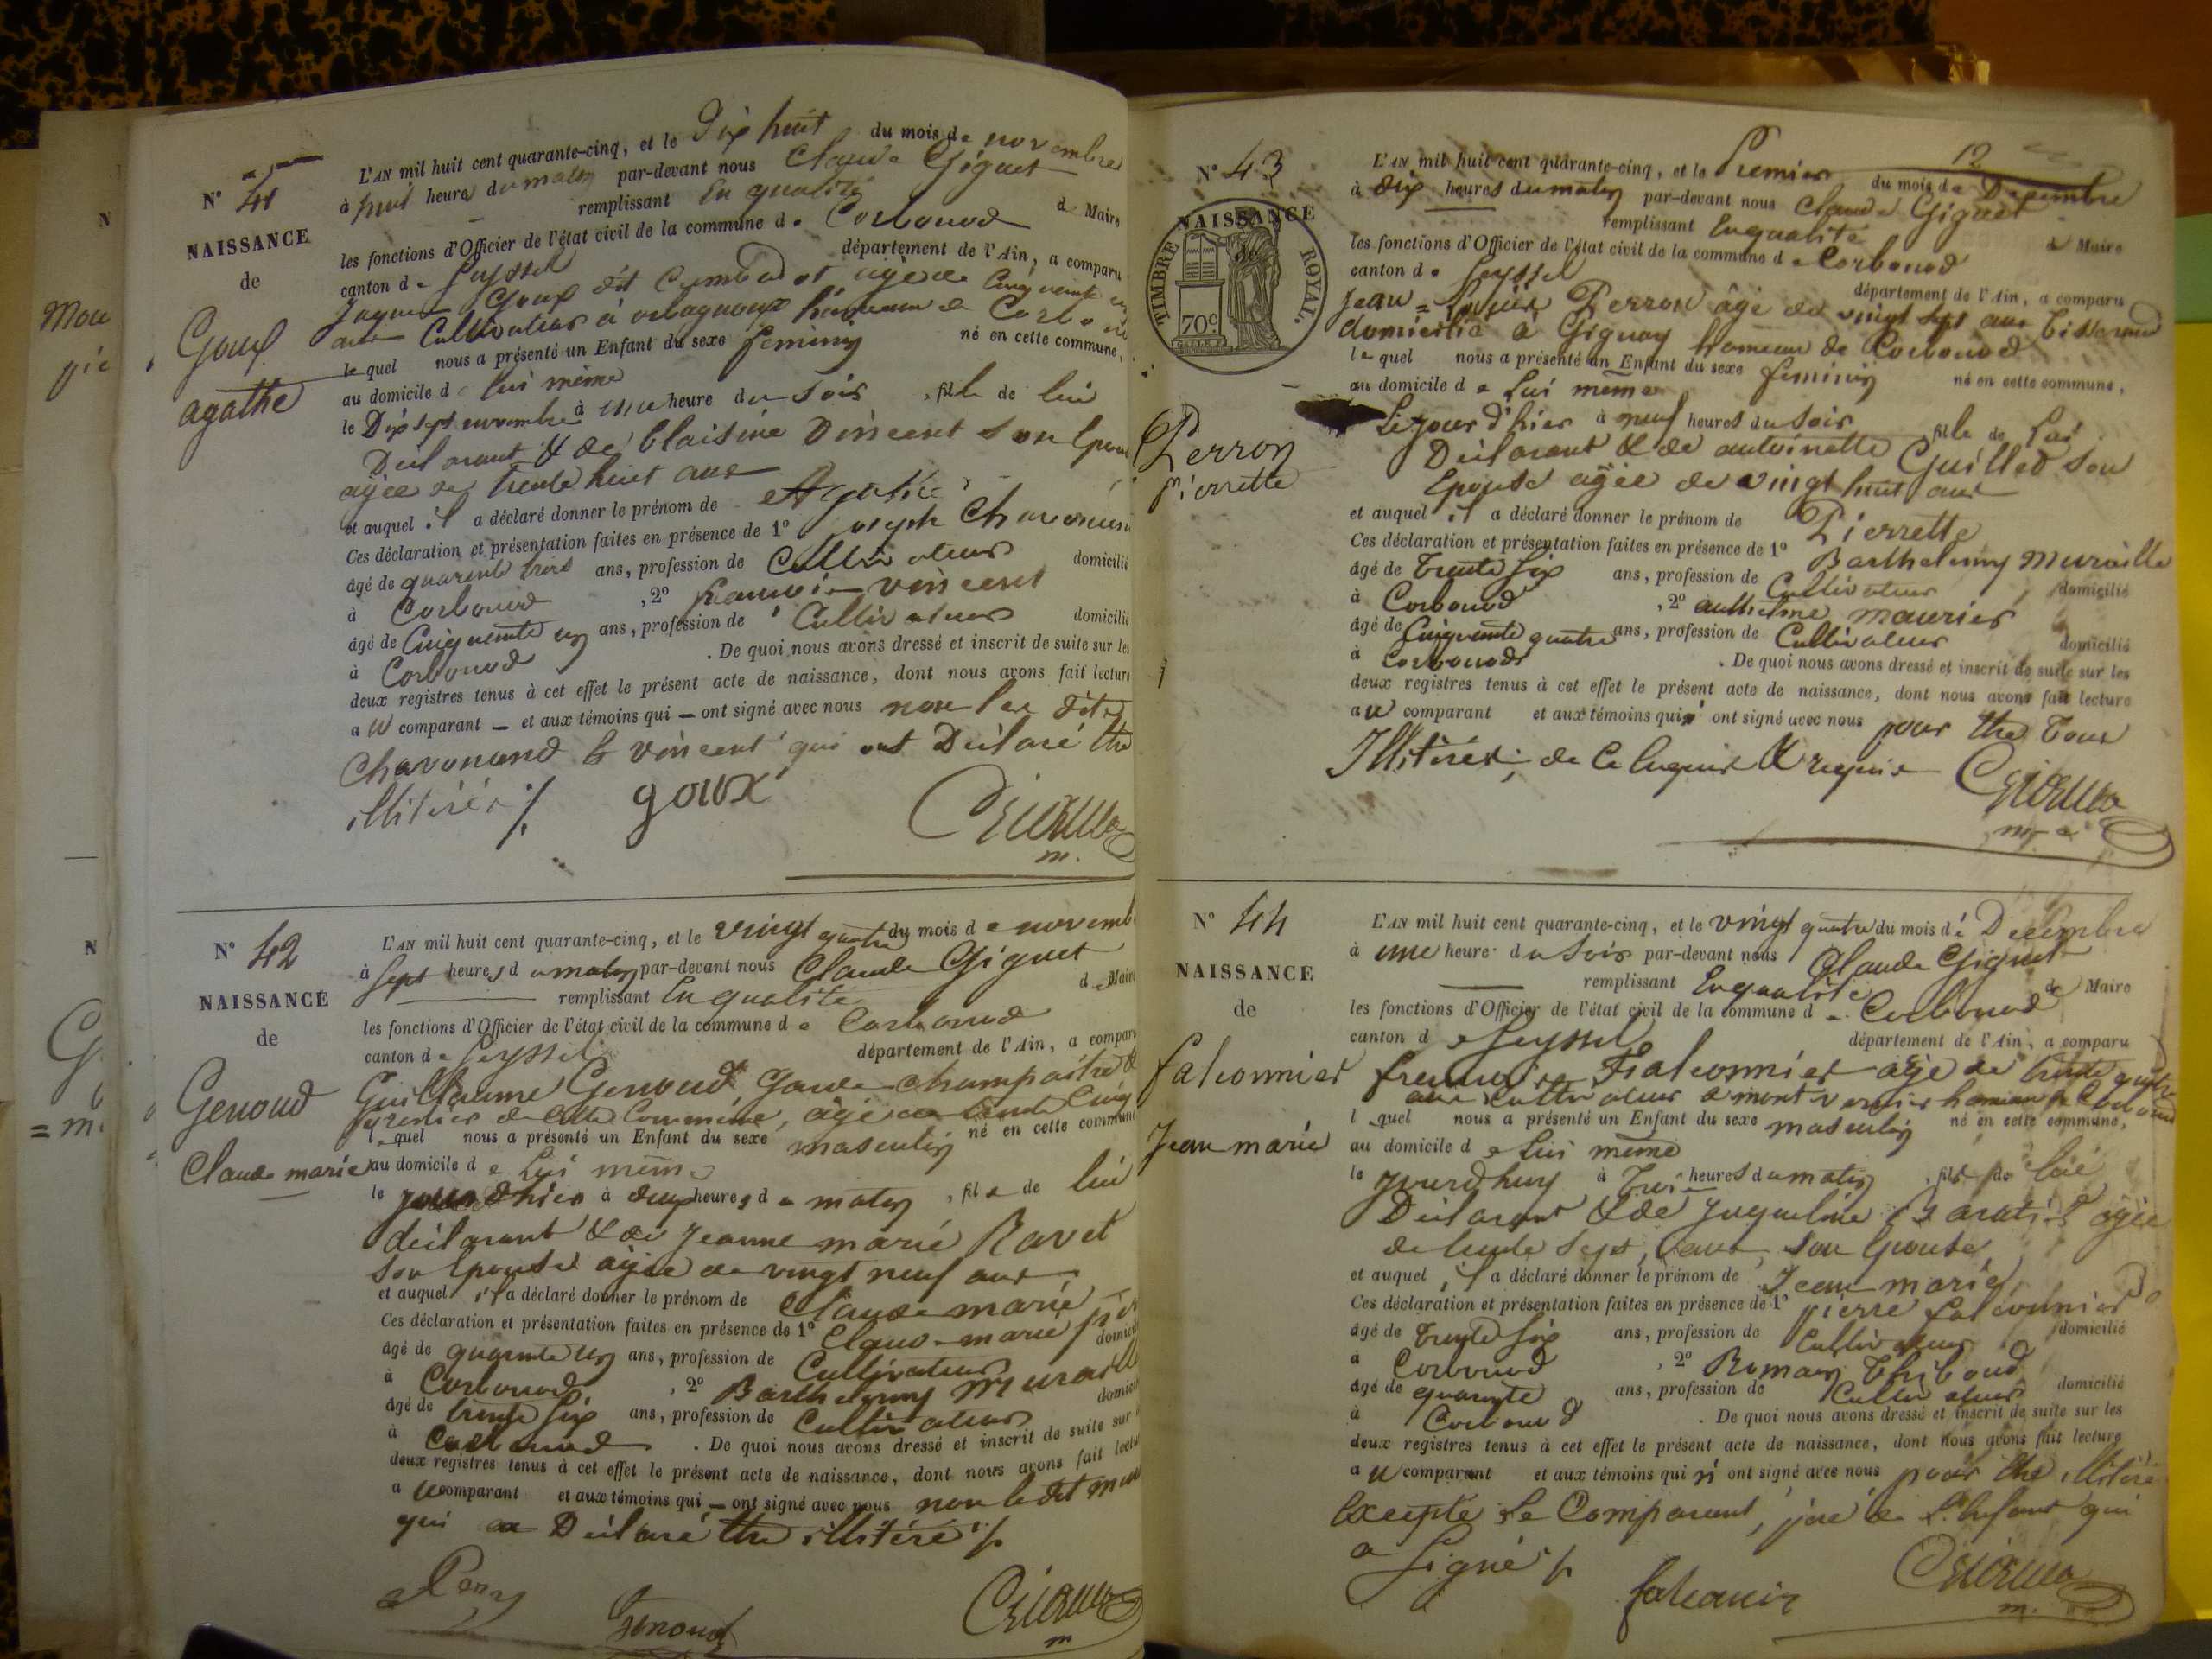 N° 41
NAISSANCE
de
Goux
agathe
L'AN mil huit cent quarante-cinq, et le Dix huit du mois de novembre
à huit heures du matin par-devant nous Claude Giguet
remplissant En qualité de Maire
les fonctions d'Officier de l'état civil de la commune de Corbonod
canton de Seyssel département de l'Ain, a comparu
Jaques Goux dit agé de Cinquante
ans Cultivateur à orbagnoux hameau de
lequel nous a présenté un Enfant du sexe feminin né en cette commune,
au domicile de lui même
le Dix sept novembre à une heure du soir, fille de lui
Déclarant & de Claisine Vincent son
agée de trente huit ans
et auquel il a déclaré donner le prénom de Agathe
Ces déclaration et présentation faites en présence de 1° joseph
âgé de quarente trois ans, profession de Cultivateur domicilié
à Corbonod, 2° francois vincent
âgé de Cinquente un ans, profession de Cultivateur domicilié
à Corbonod. De quoi nous avons dressé et inscrit de suite sur les
deux registres tenus à cet effet le présent acte de naissance, dont nous avons fait lecture
au comparant — et aux témoins qui — ont signé avec nous non les dits
Chavonand & vincent qui ont Déclaré être
illitérés ./. goux
m.
N° 42
NAISSANCE
de
Genoud
Claude marie
L'AN mil huit cent quarante-cinq, et le vingt quatre du mois de
à sept heures du matin par-devant nous Claude Giguet
remplissant En qualité de
les fonctions d'Officier de l'état civil de la commune de Corbonod
canton de Seyssel département de l'Ain, a
Guillaume Genoud Garde-champêtre &
de cette Commune, âgé de trente Cinq
lequel nous a présenté un Enfant du sexe masculin né en cette
au domicile de lui même
le jour d'hier à deux heures du matin, fils de lui
déclarant & de Jeanne marie Ravet
son épouse agée de vingt neuf ans
et auquel il a déclaré donner le prénom de Claude marie
Ces déclaration et présentation faites en présence de 1° Claude-marie
âgé de quarente un ans, profession de Cultivateur
à Corbonod, 2° Barthelemy
âgé de trente six ans, profession de Cultivateur
à Corbonod. De quoi nous avons dressé et inscrit de suite sur
deux registres tenus à cet effet le présent acte de naissance, dont nous avons fait
au comparant et aux témoins qui — ont signé avec nous non le dit
qui a Déclaré être illitéré ./.
Genoud
m
12
N° 43
NAISSANCE
TIMBRE ROYAL.
70c
de
Perron
pierrette
L'AN mil huit cent quarante-cinq, et le Premier du mois de Décembre
à dix heures du matin par-devant nous Claude Giguet
remplissant En qualité de Maire
les fonctions d'Officier de l'état civil de la commune de Corbonod
canton de Seyssel département de l'Ain, a comparu
Jean-Louis Perron âgé de vingt sept ans tisserand
domicilié à Gignay hameau de Corbonod
lequel nous a présenté un Enfant du sexe feminin né en cette commune,
au domicile de lui même
Le jour d'hier à neuf heures du soir fille de lui
Déclarant & de antoinette Guilled son
épouse agée de vingt huit ans
et auquel il a déclaré donner le prénom de Pierrette
Ces déclaration et présentation faites en présence de 1° Barthelemy muraille
âgé de trente six ans, profession de Cultivateur domicilié
à Corbonod, 2° anthelme maurier
âgé de Cinquente quatre ans, profession de Cultivateur domicilié
à Corbonod. De quoi nous avons dressé et inscrit de suite sur les
deux registres tenus à cet effet le présent acte de naissance, dont nous avons fait lecture
au comparant et aux témoins qui n' ont signé avec nous pour être tous
Illitérés, de ce Enquis & requis
N° 44
NAISSANCE
de
falconnier
Jean marie
L'AN mil huit cent quarante-cinq, et le vingt quatre du mois de Décembre
à une heure du soir par-devant nous Claude Giguet
remplissant En qualité de Maire
les fonctions d'Officier de l'état civil de la commune de Corbonod
canton de Seyssel département de l'Ain, a comparu
francois Falconnier âgé de trente quatre
ans cultivateur à montverrier hameau de Corbonod
lequel nous a présenté un Enfant du sexe masculin né en cette commune,
au domicile de lui même
le jourdhuy à trois heures du matin, fils de lui
Déclarant & de Jaqueline agée
de trente sept ans, son épouse
et auquel il a déclaré donner le prénom de Jean marie
Ces déclaration et présentation faites en présence de 1° pierre falconnier
âgé de trente six ans, profession de Cultivateur domicilié
à Corbonod, 2° Romain Thiboud
âgé de quarente ans, profession de Cultivateur domicilié
à Corbonod. De quoi nous avons dressé et inscrit de suite sur les
deux registres tenus à cet effet le présent acte de naissance, dont nous avons fait lecture
au comparant et aux témoins qui n' ont signé avec nous pour être illitéré
Excepté le Comparant, père de l'Enfant qui
a signé ./.
m.